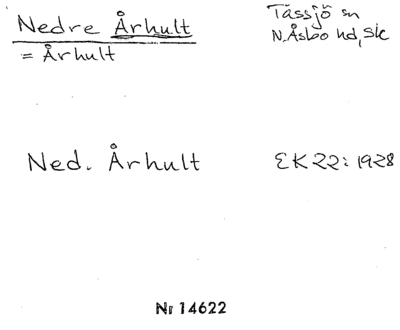 Nedre Århult
= Århult
Tåssjö sn
N.Åsbo hd, Sk
Ned. Århult
EK 22: 1928
Nr 14622